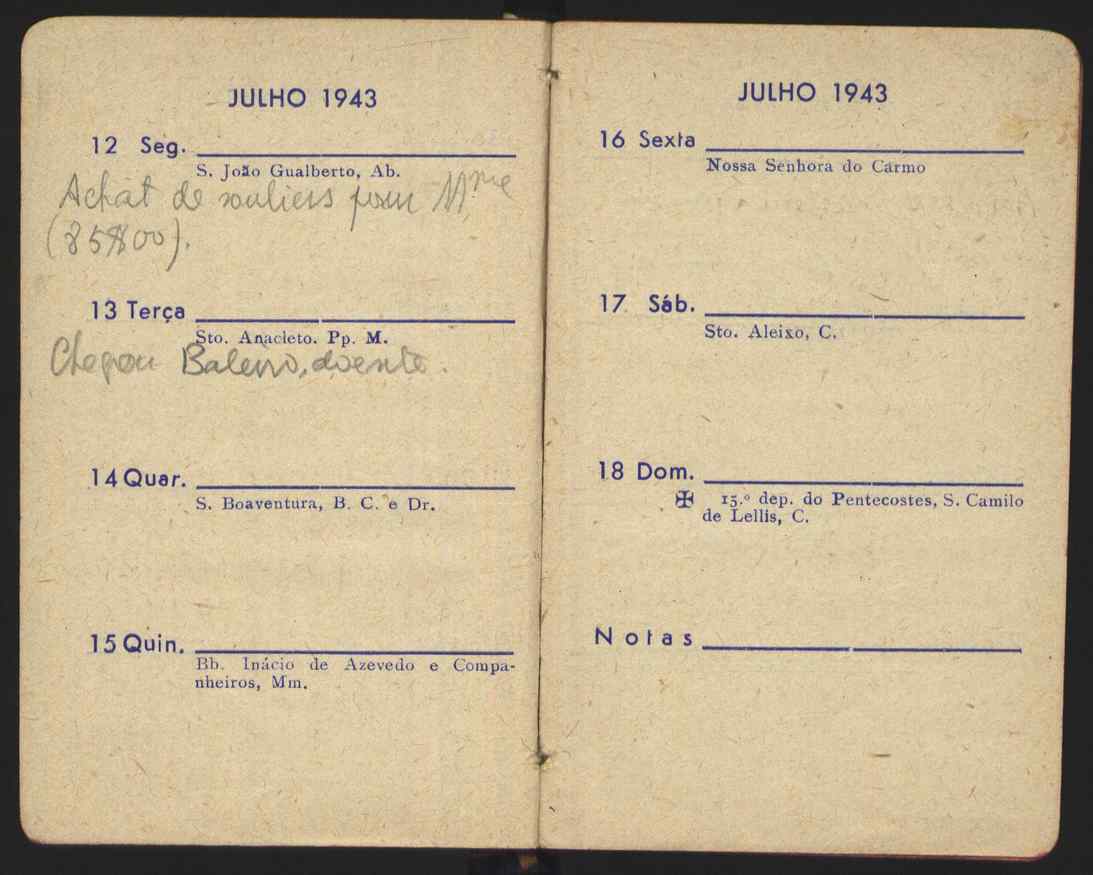 JULHO 1943
12 Seg.
S. João Gualberto, Ab.
Achat de souliers pour Mme
(85$00).
13 Terça
Sto. Anacleto. Pp. M.
Chegou Baleiro, doente.
14 Quar.
S. Boaventura, B. C. e Dr.
15 Quin.
Bb. Inácio de Azevedo e Compa-
nheiros, Mm.
JULHO 1943
16 Sexta
Nossa Senhora do Carmo
17 Sáb.
Sto. Aleixo, C.
18 Dom.
✠ 15.º dep. do Pentecostes, S. Camilo
de Lellis, C.
Notas